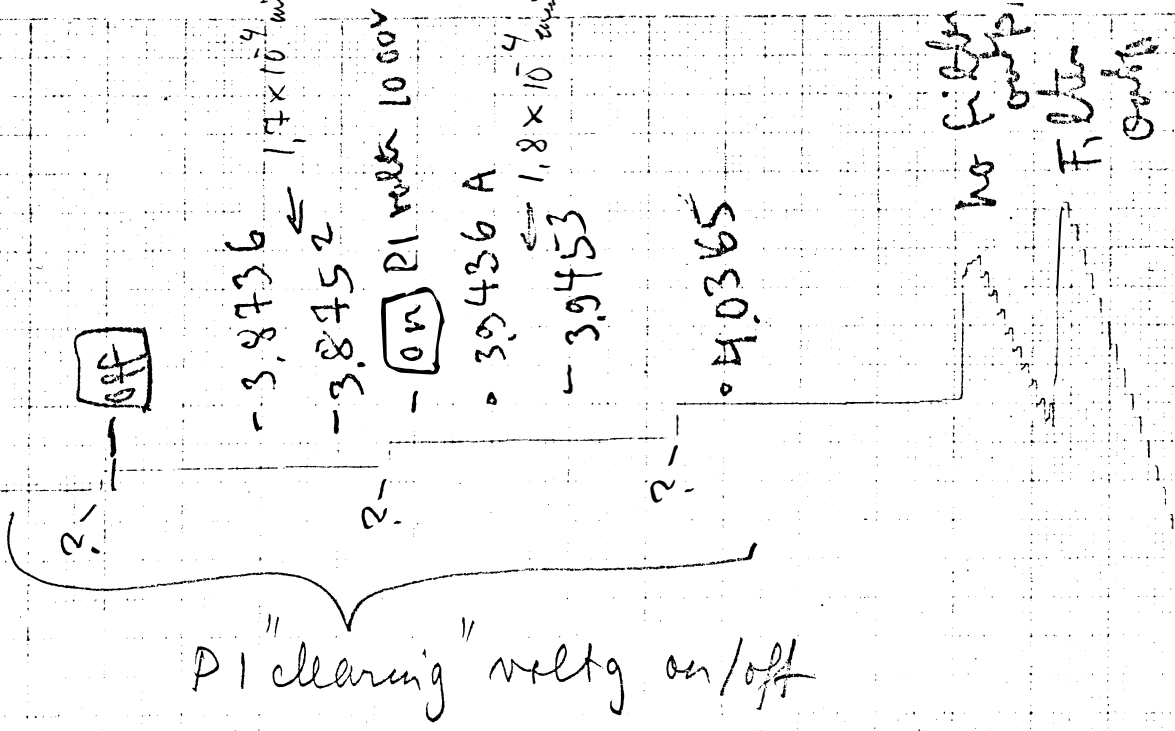 off
- 3,8736
← 1,7 x 10-4
- 3,8752
- on P1 1000V
• 3,9436 A
← 1,8 x 10-4
- 3,9453
• 4,0365
no
Filter
?-
?-
?-
P1 "clearing" voltg on/off